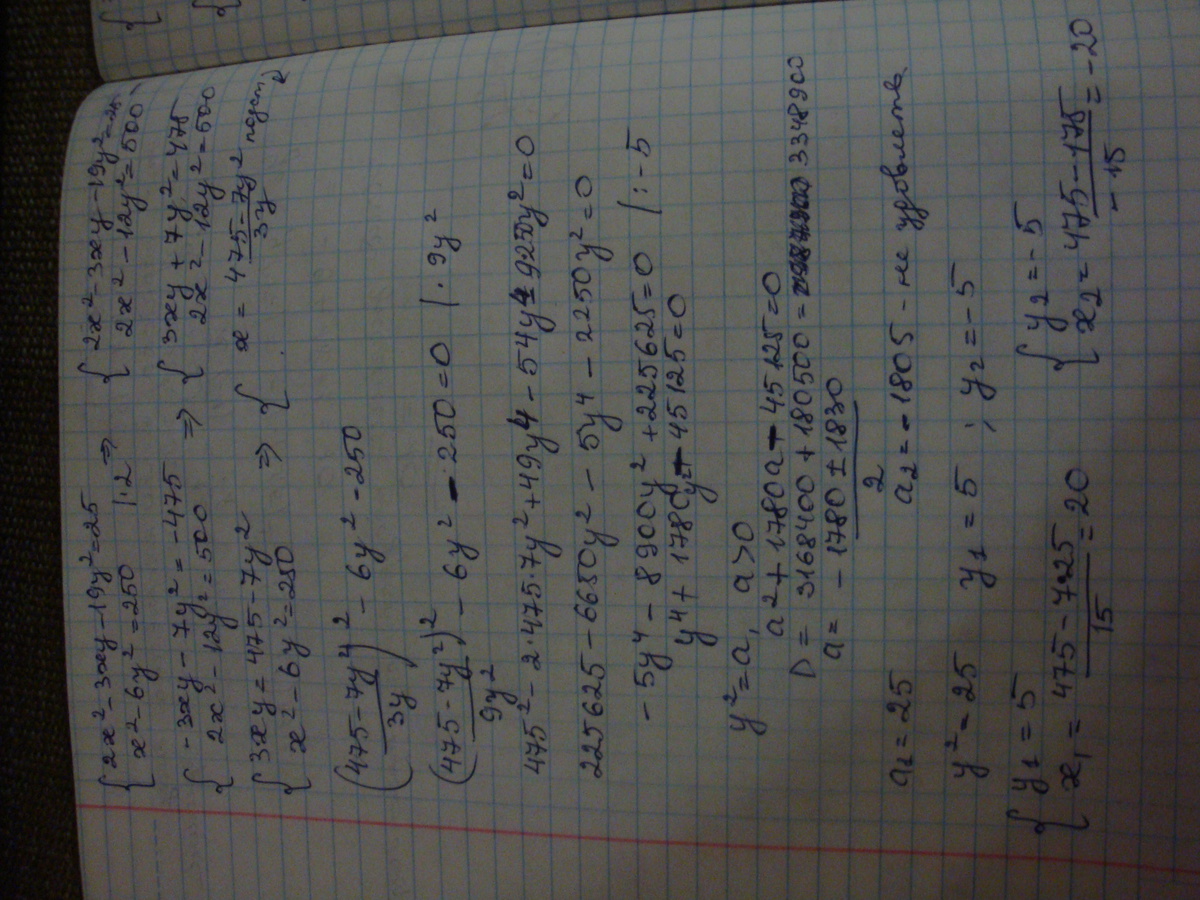 { 2x² - 3xy - 19y² = 25
{ x² - 6y² = 250 |·2 ⇒ { 2x² - 3xy - 19y² = 25
{ 2x² - 12y² = 500
{ - 3xy - 7y² = -475
{ 2x² - 12y² = 500 ⇒ { 3xy + 7y² = 475
{ 2x² - 12y² = 500
{ 3xy = 475 - 7y²
{ x² - 6y² = 250 ⇒ { x = (475 - 7y²)/3y подст.
((475 - 7y⁴)/3y)² - 6y² - 250
(475 - 7y²)²/9y² - 6y² - 250 = 0 |· 9y²
475² - 2·475·7y² + 49y⁴ - 54y⁴ - 2250y² = 0
225625 - 6650y² - 5y⁴ - 2250y² = 0
- 5y⁴ - 8900y² + 225625 = 0 |: -5
y⁴ + 1780y² - 45125 = 0
y² = a, a > 0
a² + 1780a - 45125 = 0
D = 3168400 + 180500 = 3348900
a = (- 1780 ± 1830)/2
a₁ = 25 a₂ = - 1805 - не удовлетв.
y² = 25 y₁ = 5 ; y₂ = -5
{ y₁ = 5 { y₂ = -5
{ x₁ = (475 - 7·25)/15 = 20 { x₂ = (475 - 175)/-15 = -20